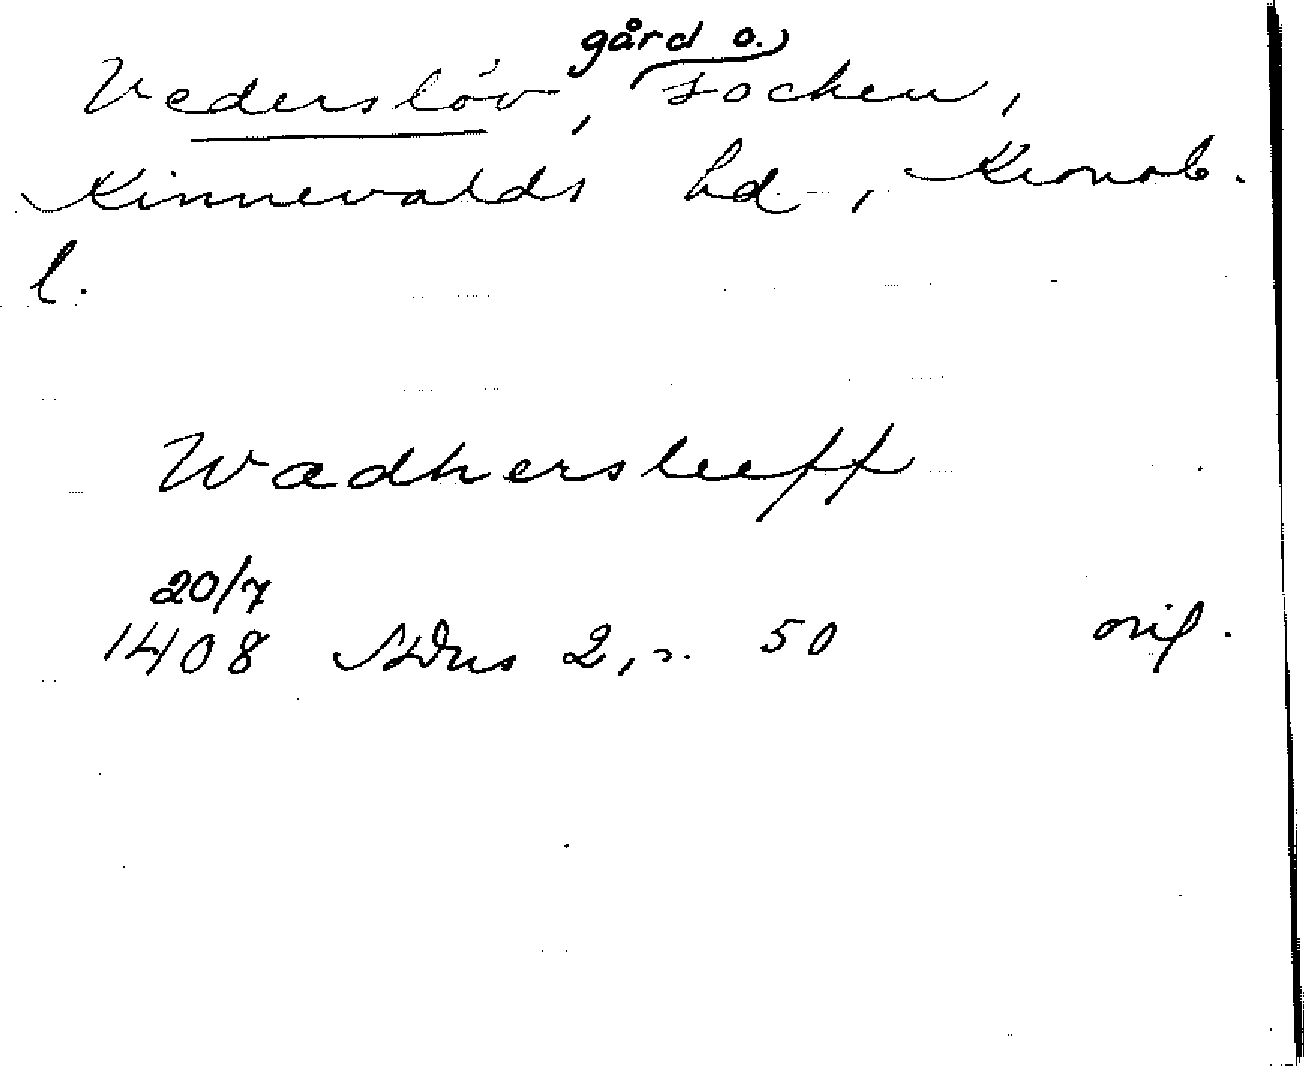 gård o.
Vederslöv, socken,
Kinnevalds hd., Kronob.
l.
Wadhersleeff
20/7
1408 SDns 2, s. 50 orig.